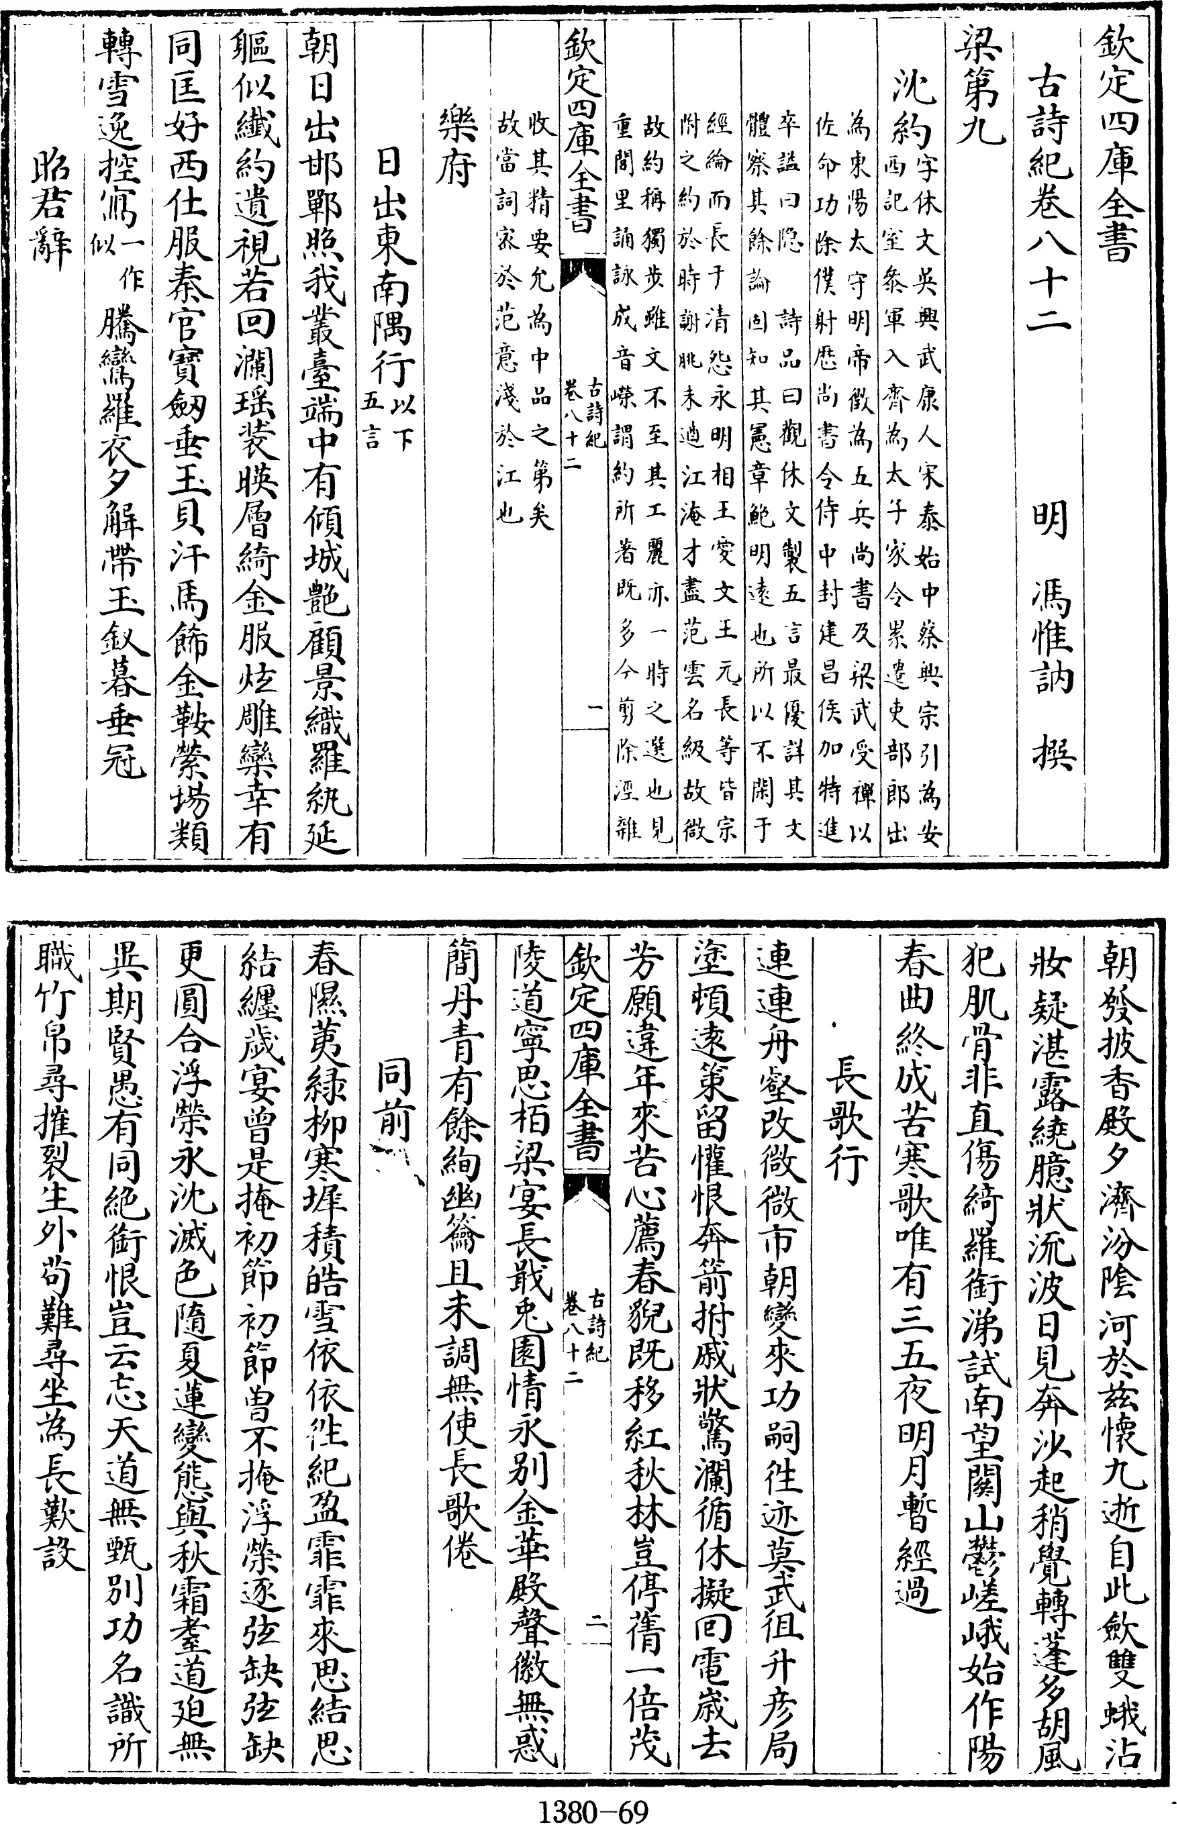 欽定四庫全書
古詩紀卷八十二　明　馮惟訥　撰
梁第九
沈約字休文吳興武康人宋泰始中蔡興宗引為安
西記室叅軍入齊為太子家令累遷吏部郎出
為東陽太守明帝徵為五兵尚書及梁武受禪以
佐命功除僕射歷尚書令侍中封建昌侯加特進
卒諡曰隐　詩品曰觀休文製五言最優詳其文
體察其餘論固知其憲章鮑明遠也所以不閑于
經綸而長于清怨永明相王愛文王元長等皆宗
附之約於時謝朓未遒江淹才盡范雲名級故微
故約稱獨步雖文不至其工麗亦一時之選也見
重閭里誦詠成音嶸謂約所著既多今剪除淫雜
欽定四庫全書
古詩紀
卷八十二
一
收其精要允為中品之第矣
故當詞宻於范意淺於江也
樂府
日出東南隅行以下
五言
朝日出邯鄲照我叢臺端中有傾城艶顧景織羅紈延
軀似纎約遺視若回瀾瑶裝暎層綺金服炫雕欒幸有
同匡好西仕服秦官寳劒垂玉貝汗馬飾金鞍縈場類
轉雪逸控寫一作
似騰鸞羅衣夕解帶玉釵暮垂冠
昭君辭
朝發披香殿夕濟汾陰河於兹懷九逝自此歛雙蛾沾
妝疑湛露繞臆狀流波日見奔沙起稍覺轉蓬多胡風
犯肌骨非直傷綺羅銜涕試南望闗山鬱嵯峨始作陽
春曲終成苦寒歌唯有三五夜明月暫經過
長歌行
連連舟壑改微微市朝變來功嗣徃迹莫武徂升彥局
塗頓逺策留懽恨奔箭拊戚狀驚瀾循休擬回電歲去
芳願違年來苦心薦春貎既移紅秋林豈停蒨一倍茂
欽定四庫全書
古詩紀
卷八十二
二
陵道寧思栢梁宴長戢兎園情永别金華殿聲徽無惑
簡丹青有餘絢幽籥且未調無使長歌倦
同前
春隰荑緑柳寒墀積皓雪依依徃紀盈霏霏來思結思
結纒歲宴曾是掩初節初節曽不掩浮榮逐弦缺弦缺
更圓合浮榮永沈滅色隨夏蓮變態與秋霜耋道廹無
異期賢愚有同絶銜恨豈云忘天道無甄别功名識所
職竹帛尋摧裂生外茍難尋坐為長歎設
1380-69